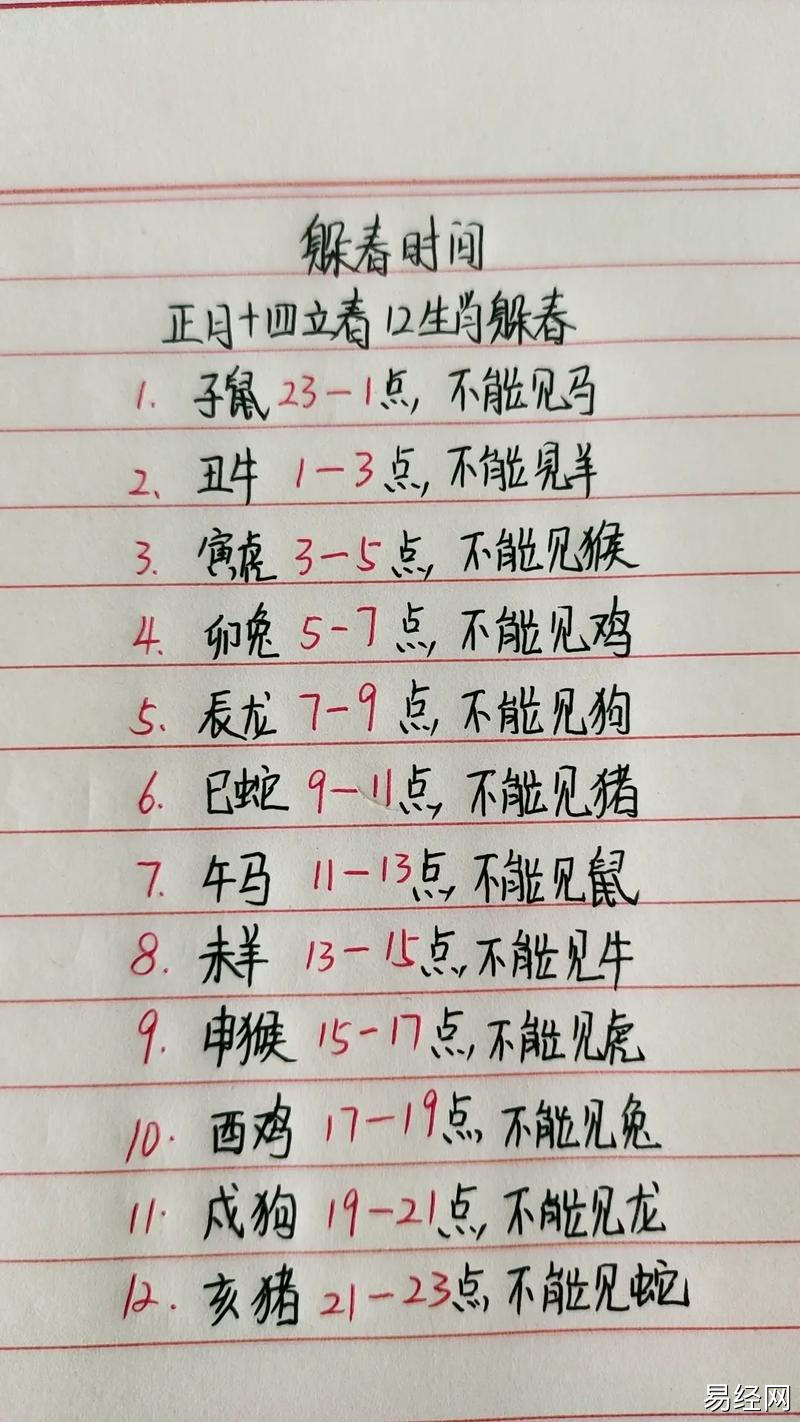 躲春时间
正月十四立春12生肖躲春
1. 子鼠 23-1点, 不能见马
2、 丑牛 1-3点, 不能見羊
3. 寅虎 3-5点, 不能见猴
4. 卯兔 5-7点, 不能见鸡
5. 辰龙 7-9点, 不能见狗
6. 巳蛇 9-11点, 不能见猪
7. 午马 11-13点, 不能见鼠
8. 未羊 13-15点, 不能见牛
9. 申猴 15-17点, 不能见虎
10. 酉鸡 17-19点, 不能见兔
11. 戌狗 19-21点, 不能见龙
12. 亥猪 21-23点, 不能见蛇
易经网